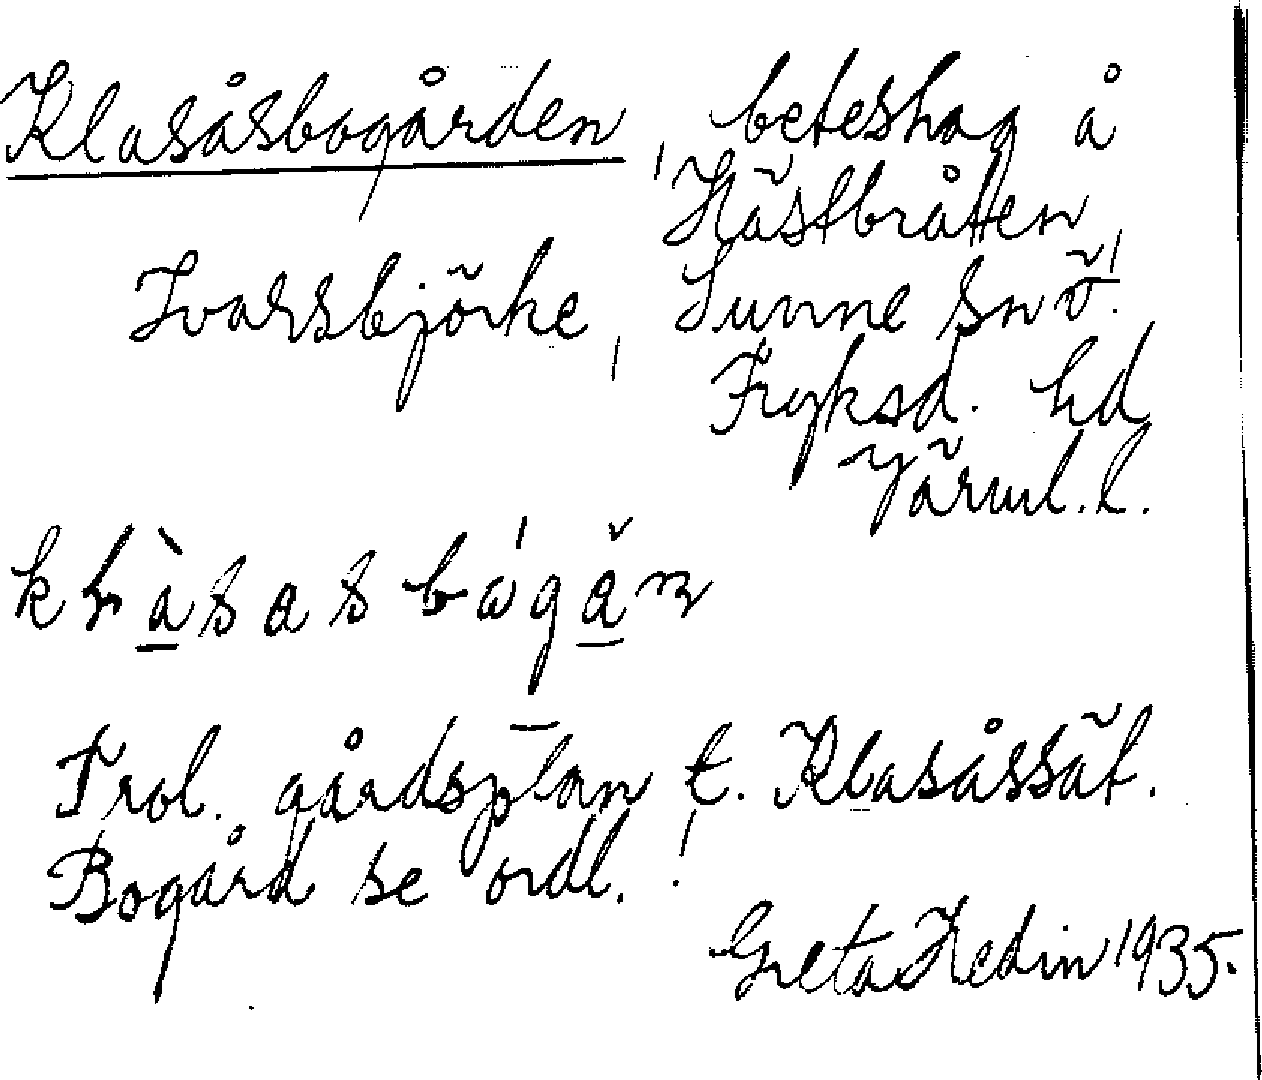 Klasåsbogården, beteshag å
Hästbråten,
Ivarsbjörke, Sunne sn ö.
Fryksd. hd
Värml. l.
Trol. gårdsplan t. Klasåssät.
Bogård se ordl. !
Greta Hedin 1935.